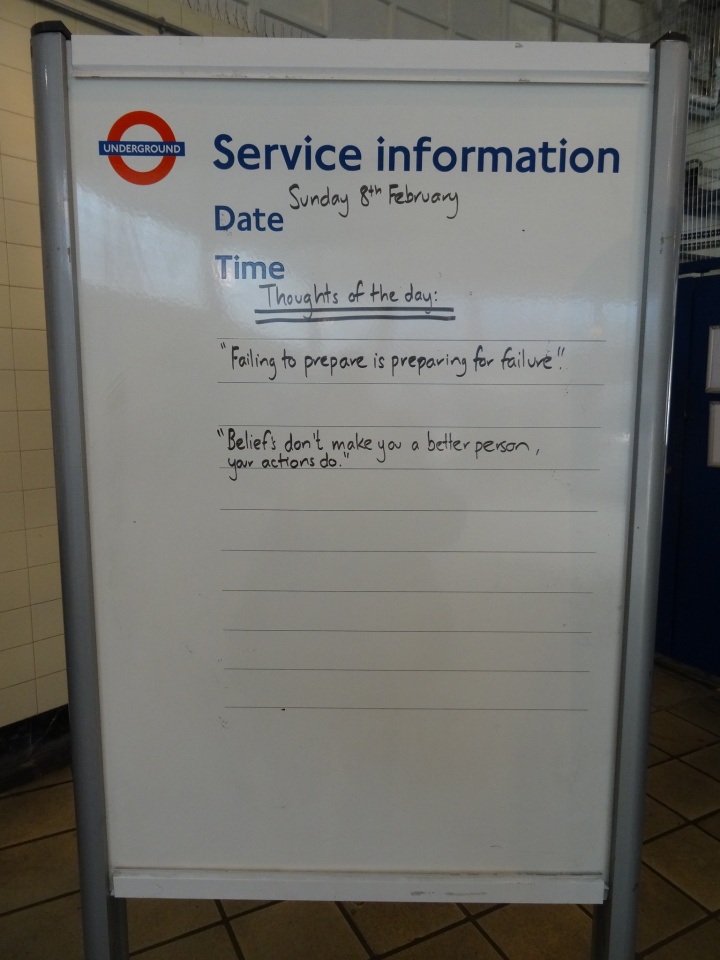 UNDERGROUND
Service information
Date Sunday 8th February
Time
Thoughts of the day:
"Failing to prepare is preparing for failure".
"Beliefs don't make you a better person,
your actions do."